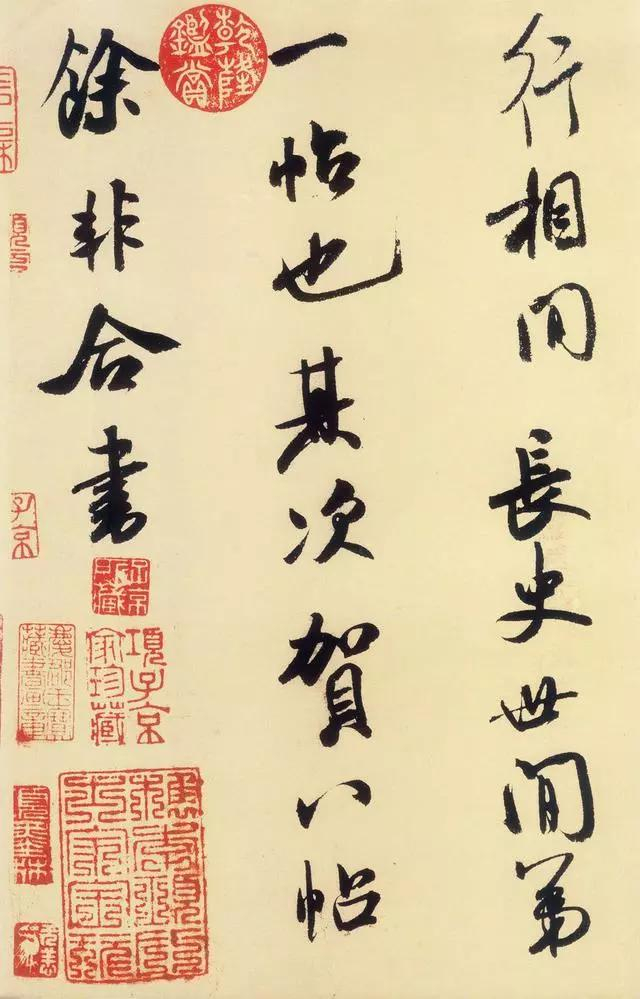 行相間長史世間第
一帖也其次賀八帖
餘非合書
乾隆鑑賞
項子京家珍藏
子京